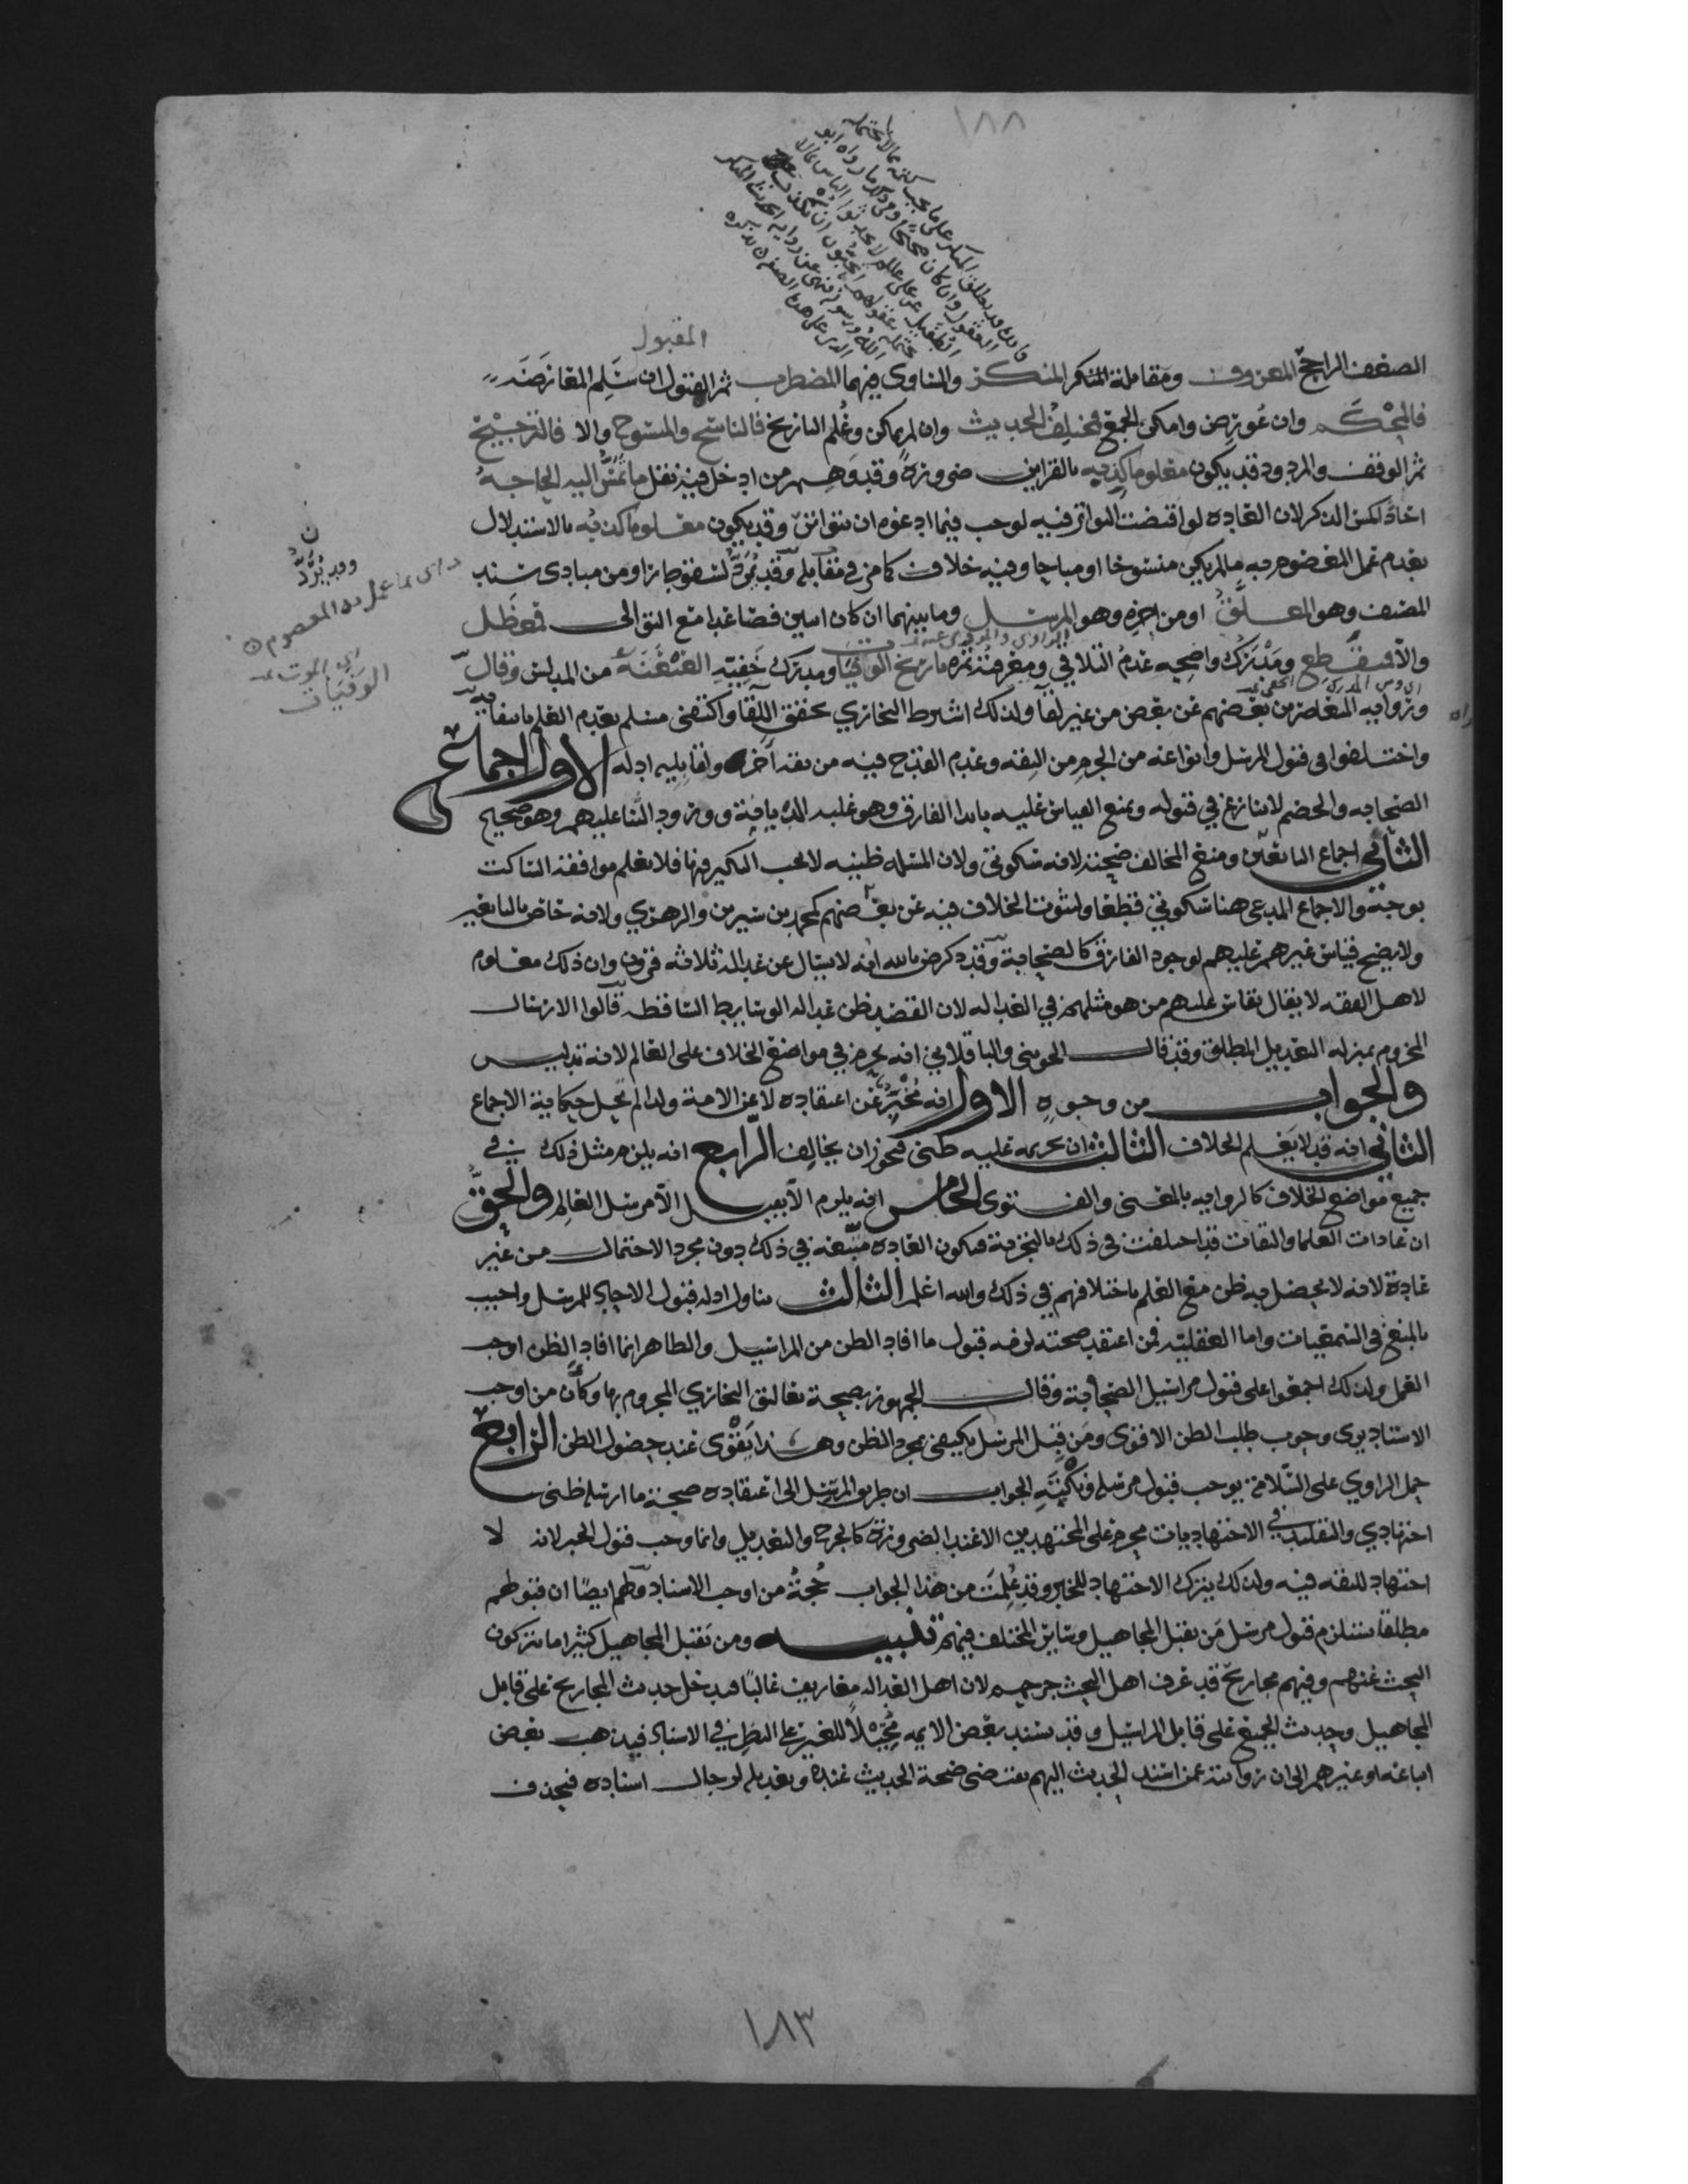 ١٨٨
المقبول
الضعف الراجح المعروف ومقابلة المنكر المنكر والمساوي فيهما المضطرب ثم المقبول ان سلم المعارضة
فالمحكم وان عورض وامكن الجمع فمختلف الحديث وان لم يمكن وعلم التاريخ فالناسخ والمنسوخ والا فالترجيح
ثم الوقف والمردود قد يكون معلوما كذبه بالقراين ضرورة وقد وهم من ادخل فيه نقل ما تمس اليه الحاجة
احادا لكن الذكر لان العادة لو اقتضت التواتر فيه لوجب فيما ادعوه ان يتواتر وقد يكون معلوما كذبه بالاستدلال
بعدم عمل المعصوم به ما لم يكن منسوخا او مباحا وفيه خلاف كما مر في مقابله وقد يرد لسقوط اما من مبادي سند
المصنف وهو المعلق او من اخره وهو المرسل وما بينهما ان كان اثنين فصاعدا مع التوالي فمعضل
والا فمنقطع ومدرك واضحه عدم التلاقي ومعرفة تاريخ الوفيات ومدرك خفيه العنعنة من المدلس وقال
ورواية المتعاصرين بعضهم عن بعض من غير لقا ولذلك اشترط البخاري تحقق اللقا واكتفى مسلم بعدم العلم بانتفايه
واختلفوا في قبول المرسل وانواعه من الجزم من الثقة وعدم القدح فيه من ثقة آخر ولقابليه ادلة الاول اجماع
الصحابة والخصم لا ينازع في قبوله ويمنع القياس عليه بابدا الفارق وهو غلبة الديانة وورود الثنا عليهم وهو صحيح
الثاني اجماع التابعين ومنع المخالف صحته لانه سكوتي ولان المسلة ظنية لا يجب النكير فيها فلا يعلم موافقة الساكت
بوجه والاجماع المدعى هنا سكوتي قطعا ولثبوت الخلاف فيه عن بعضهم كمحمد بن سيرين والزهري ولانه خاص بالتابعين
ولا يصح قياس غيرهم عليهم لوجود الفارق كالصحابة وقد ذكر ض بالله انه لا يسال عن عدالة ثلاثة قرون وان ذلك معلوم
لاهل الفقه لا يقال نقاس عليهم من هو مثلهم في العدالة لان القصد ظن عدالة الوسايط الساقطة قالوا الارسال
المجزوم بمنزلة التعديل المطلق وقد قال الجويني والباقلاني انه يحرم في مواضع الخلاف على العالم لانه تدليس
والجواب من وجوه الاول انه مخبر عن اعتقاده لا عن الامة ولذا لم تحل حكاية الاجماع
الثاني انه قد لا يعلم الخلاف الثالث ان تحريمه عليه ظني فيجوز ان يخالف الرابع انه يلزم مثل ذلك في
جميع مواضع الخلاف كالرواية بالمعنى والفتوى الخامس انه يلزم الا يقبل الا مرسل العالم والحق
ان عادات العلما والثقات قد اختلفت في ذلك بالتجربة فتكون العادة متبعة في ذلك دون مجرد الاحتمال من غير
عادة لانه لا يحصل به ظن مع العلم باختلافهم في ذلك والله اعلم الثالث تناول ادلة قبول الاحاد للمرسل واجيب
بالمنع في السمعيات واما العقلية فمن اعتقد صحته لزمه قبول ما افاد الظن من المراسيل والظاهر انما افاد الظن اوجب
العمل ولذلك اجمعوا على قبول مراسيل الصحابة وقال الجمهور بصحة تعاليق البخاري المجزوم بها وكان من اوجب
الاسناد يرى وجوب طلب الظن الاقوى ومن قبل المرسل يكتفي بمجرد الظن وهذا يقوى عند حصول الظن الرابع
حمل الراوي على السلامة يوجب قبول مرسله الجواب ان طريق المرسل الى اعتقاده صحة ما ارسله ظني
اجتهادي والتقليد في الاجتهاديات محرم على المجتهدين الا عند الضرورة كالجرح والتعديل وانما وجب قبول الخبر لانه لا
اجتهاد للثقة فيه ولذلك يترك الاجتهاد للخبر وقد علمت من هذا الجواب حجة من اوجب الاسناد ولهم ايضا ان قبولهم
مطلقا يستلزم قبول مرسل من يقبل المجاهيل وساير المختلف فيهم تنبيه ومن يقبل المجاهيل كثيرا ما يتركون
البحث عنهم وفيهم مجاريح قد عرف اهل البحث جرحهم لان اهل العدالة معاريف غالبا فيدخل حديث المجاريح على قابل
المجاهيل وحديث الجميع على قابل المراسيل وقد يسند بعض الايمة محيلا للغير على النظر في الاسناد فيذهب بعض
اتباعه او غيرهم الى ان روايته عمن اسند الحديث اليهم تقتضي صحة الحديث عنده وتعديله لرجال اسناده فيحذف
وقد يرد
اي بما عمل به المعصوم
اي الموت
الوفيات
١٨٣